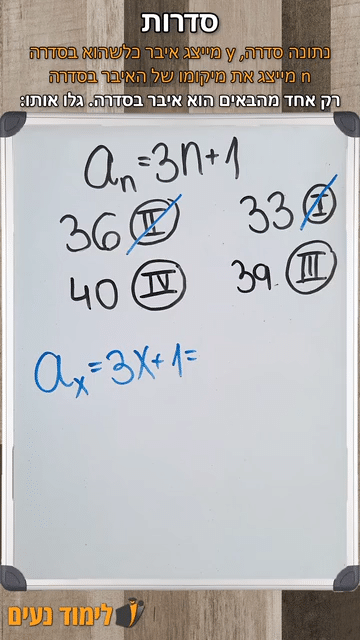 סדרות
נתונה סדרה, y מייצג איבר כלשהוא בסדרה
n מייצג את מיקומו של האיבר בסדרה
רק אחד מהבאים הוא איבר בסדרה. גלו אותו:
aₙ=3n+1
36 II 33 I
40 IV 39. III
aₓ=3x+1=
לימוד נעים